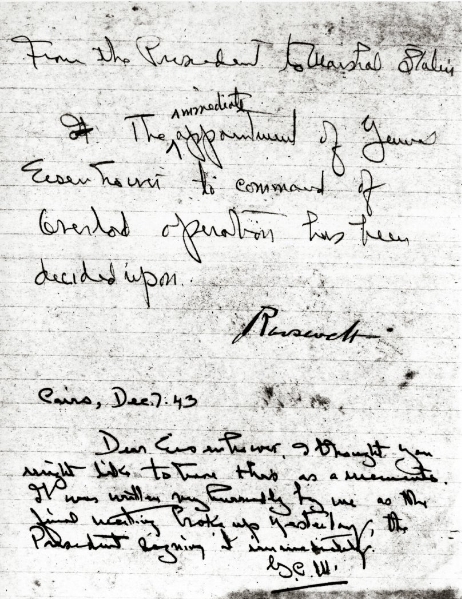 From the President to Marshal Stalin
immediate
The appointment of General
Eisenhower to command of
Overlord operation has been
decided upon.
Roosevelt
Cairo, Dec. 7. 43
Dear Eisenhower, I thought you
might like to have this as a memento.
It was written very hurriedly by me as the
final meeting broke up yesterday, the
President signing it immediately.
G.C.M.